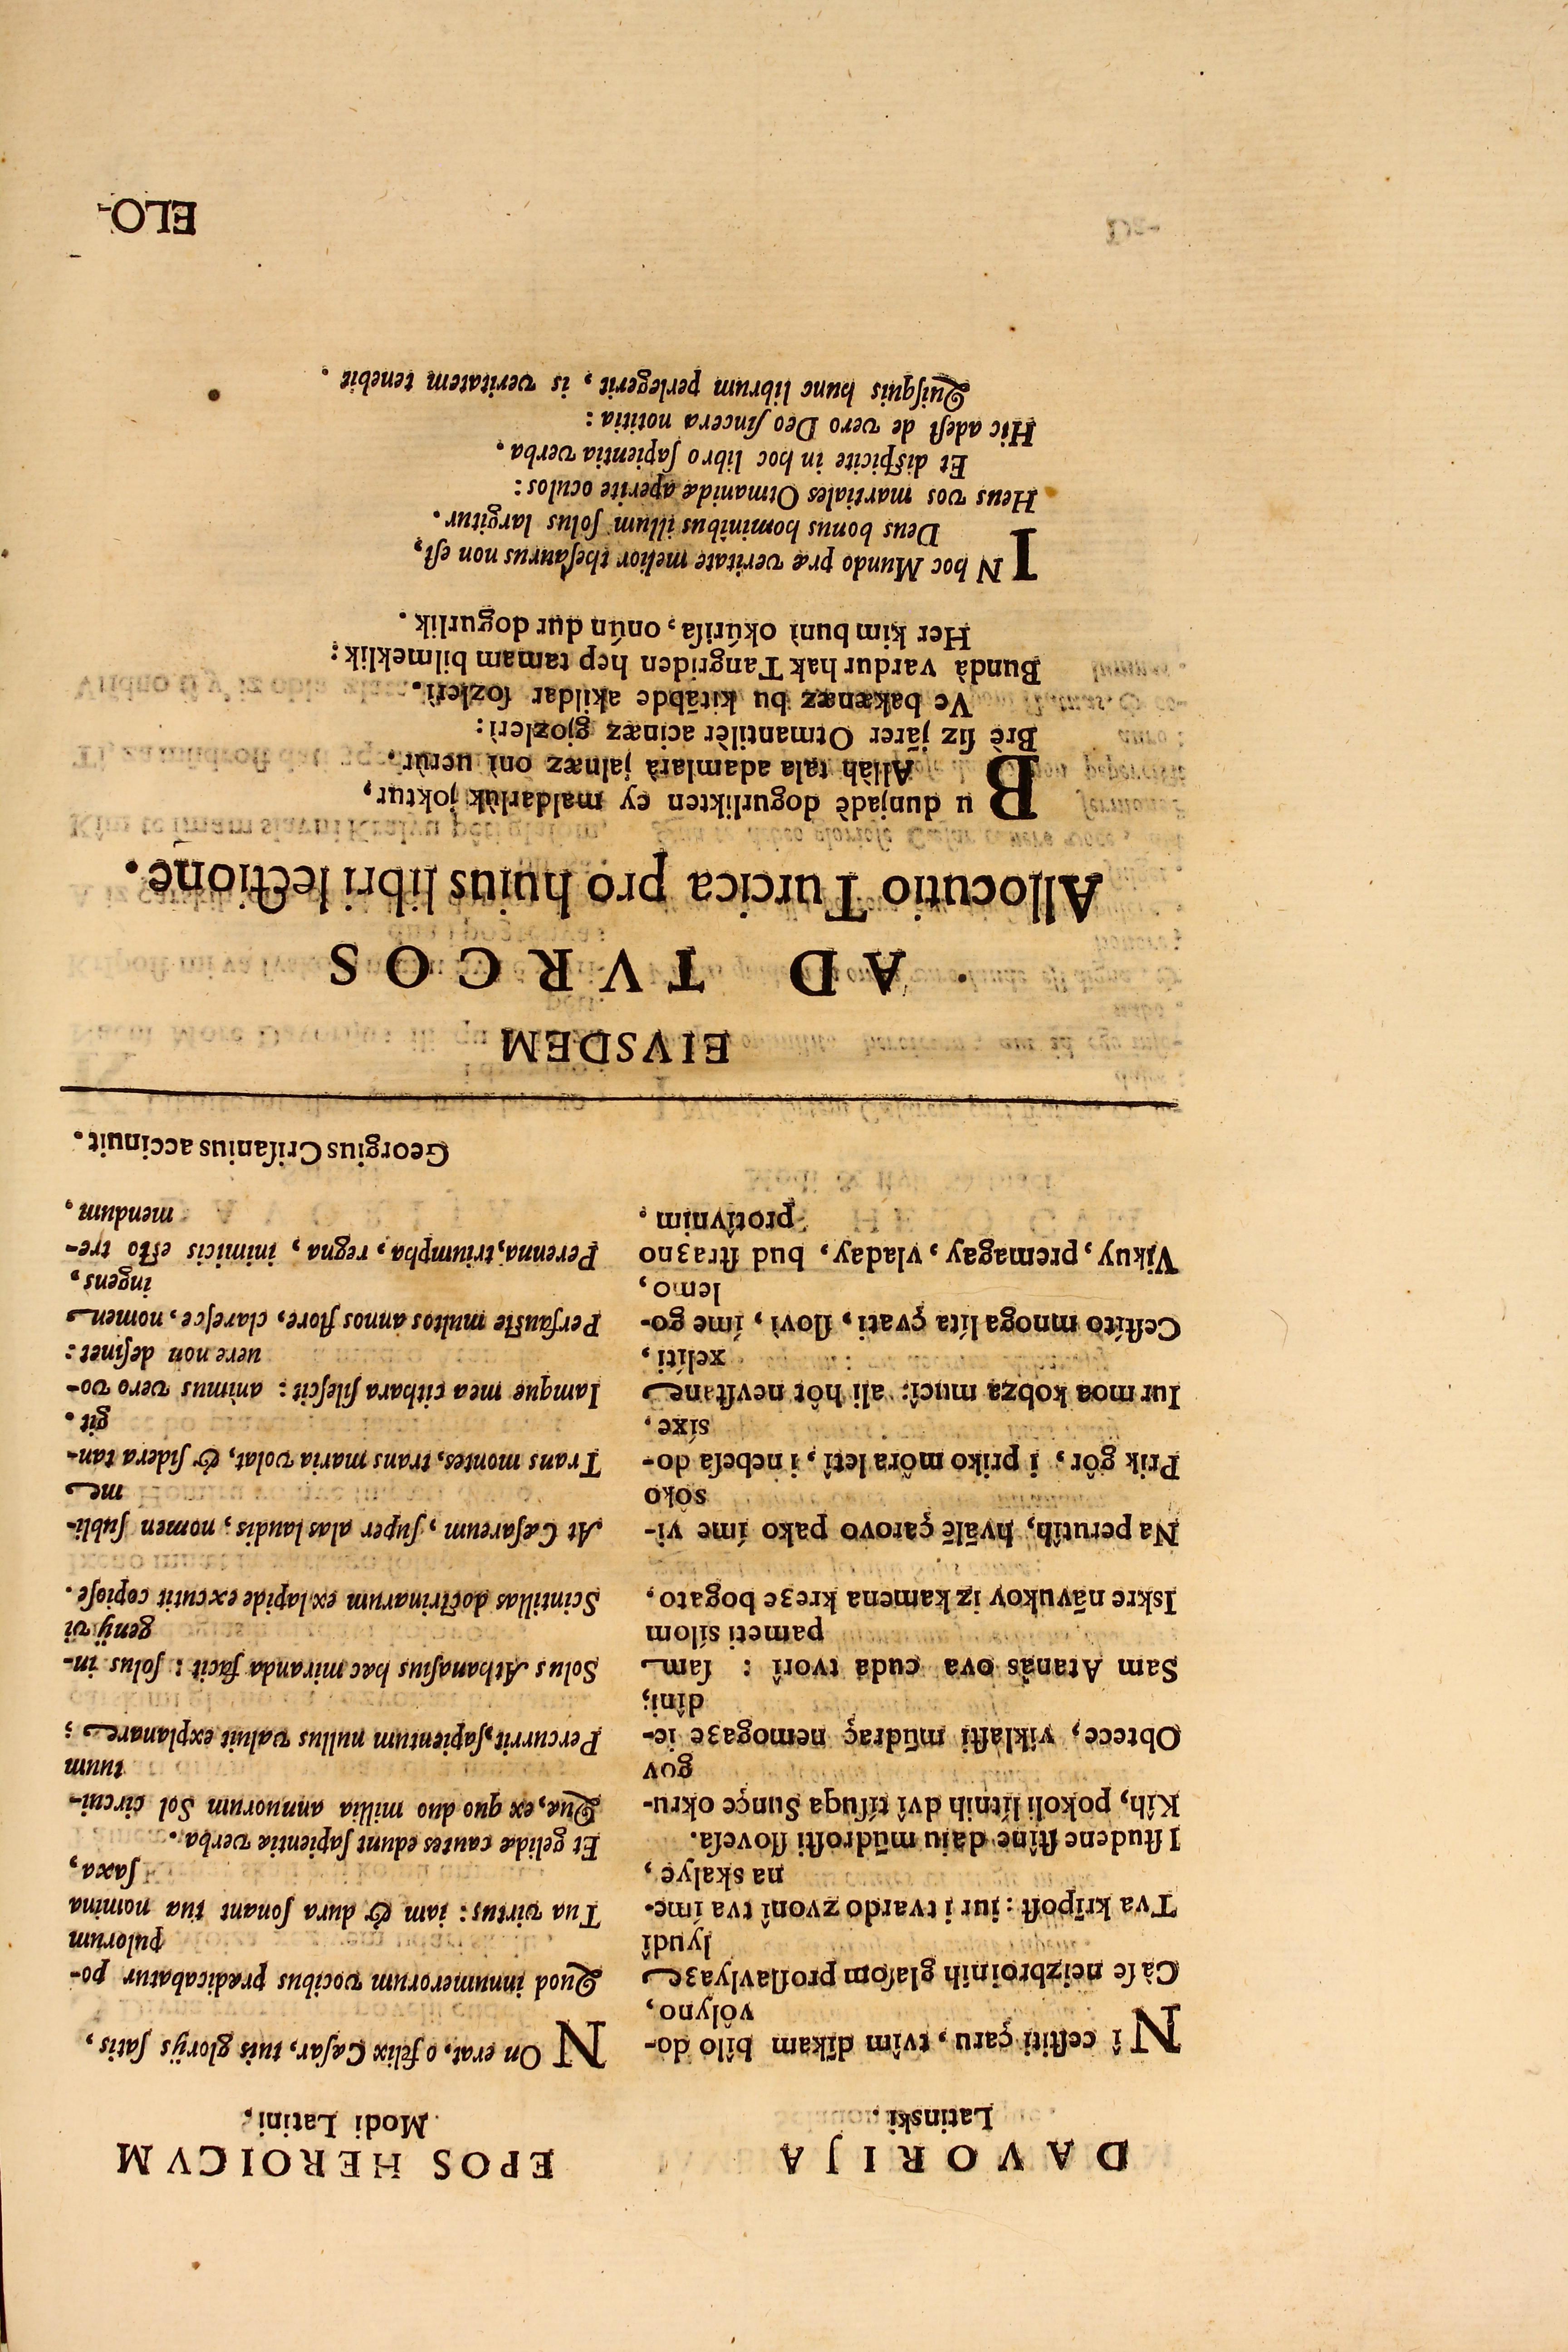 DAVORIJA
Latinski.
Nî ceſtiti çaru, tvîm dîkam bîlo do-
vôlyno,
Cà ſe neizbroinih glaſom proſlavlyaʒe
lyudî
Tva krîpoſt: jur i tvardo zvonî tva íme-
na skalye,
I ſtudene ſtîne daju mūdroſti ſloveſa.
Kîh, pokoli lítnih dvî tíſuqa Sunçe okru-
gov
Obtece, víklaſti mūdraç nemogaʒe ie-
dîni;
Sam Atanās ova cuda tvorî : ſam
pameti sílom
Iskre nāvukov iz kamena kreʒe bogato.
Na perutîh, hvālē çarovo pako íme vi-
sôko
Prik gôr, i priko môra letî, i nebeſa do-
síxe.
Iur moa kobza mucî: ali hôt nevſtane
xelíti,
Ceſtíto mnoga líta çvati, ſlovi, íme go-
lemo,
Vikuy, premagay, vladay, bud ſtraʒno
protîvnim.
EPOS HEROICVM
Modi Latini.
NOn erat, o felix Cæſar, tuis glorijs ſatis,
Quod innumerorum vocibus prædicabatur po-
pulorum
Tua virtus: iam & dura ſonant tua nomina
ſaxa,
Et gelidæ cautes edunt ſapientiæ verba.
Quæ, ex quo duo millia annuorum Sol circui-
tuum
Percurrit, ſapientum nullus valuit explanare;
Solus Athanaſius hæc miranda facit : ſolus in-
genij vi
Scintillas doctrinarum ex lapide excutit copioſe.
At Cæſareum, ſuper alas laudis, nomen ſubli-
me
Trans montes, trans maria volat, & ſidera tan-
git.
Iamque mea cithara ſileſcit: animus vero vo-
uere non deſinet:
Perfauſte multos annos flore, clareſce, nomen
ingens,
Perenna, triumpha, regna, inimicis eſto tre-
mendum.
Georgius Criſanius accinuit.
EIVSDEM
AD TVRCOS
Allocutio Turcica pro huius libri lectione.
Bu dunjadè dogurlikten ey maldarlùk joktur,
Allàh tala adamlarà jalnæz onì uerùr.
Brè ſiz jārer Otmantilèr acinæz gjozlerì:
Ve bakænæz bu kitābde akildar ſozlerì.
Bundà vardur hak Tangriden hep tamam bilmeklik:
Her kim bunì okúriſa, onún dur dogurlik.
IN hoc Mundo præ veritate melior theſaurus non eſt,
Deus bonus hominibus illum ſolus largitur.
Heus vos martiales Otmanidæ aperite oculos:
Et diſpicite in hoc libro ſapientia verba.
Hic adeſt de vero Deo ſincera notitia:
Quiſquis hunc librum perlegerit, is veritatem tenebit.
ELO-